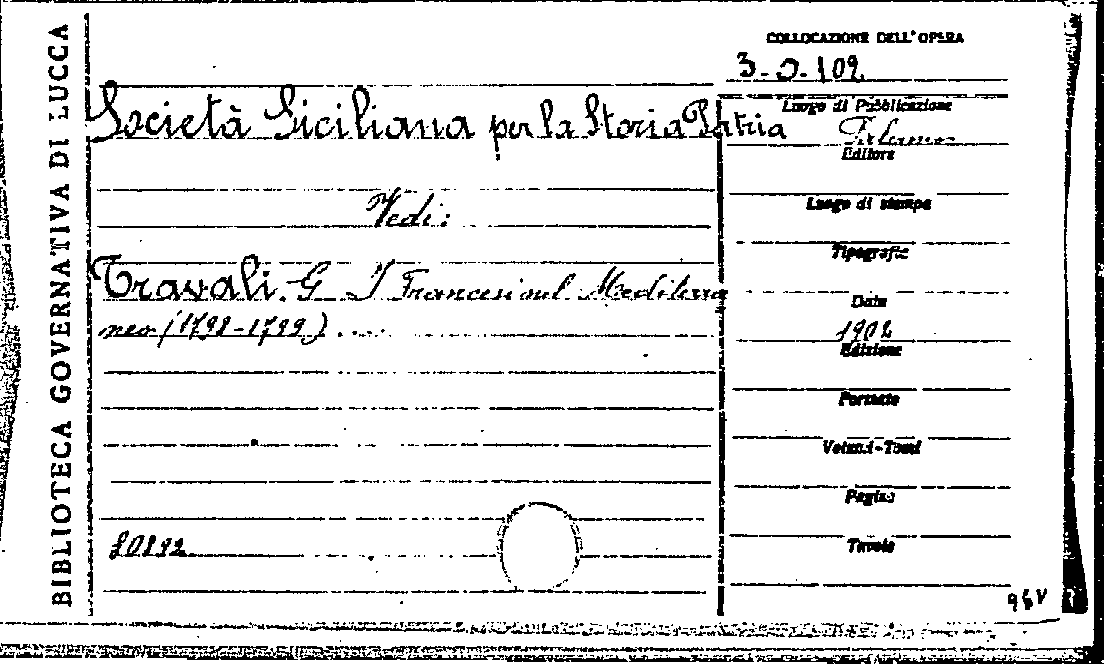 BIBLIOTECA GOVERNATIVA DI LUCCA
COLLOCAZIONE DELL'OPERA
3-O-102
Società Siciliana per la Storia Patria
Vedi:
Travali. G I Francesi nel Mediterra
neo (1798-1799) ....
Luogo di Pubblicazione
Palermo
Editore
Luogo di stampa
Tipografia
Data
1902
Edizione
Formato
Volumi-Tomi
Pagine
Tavole